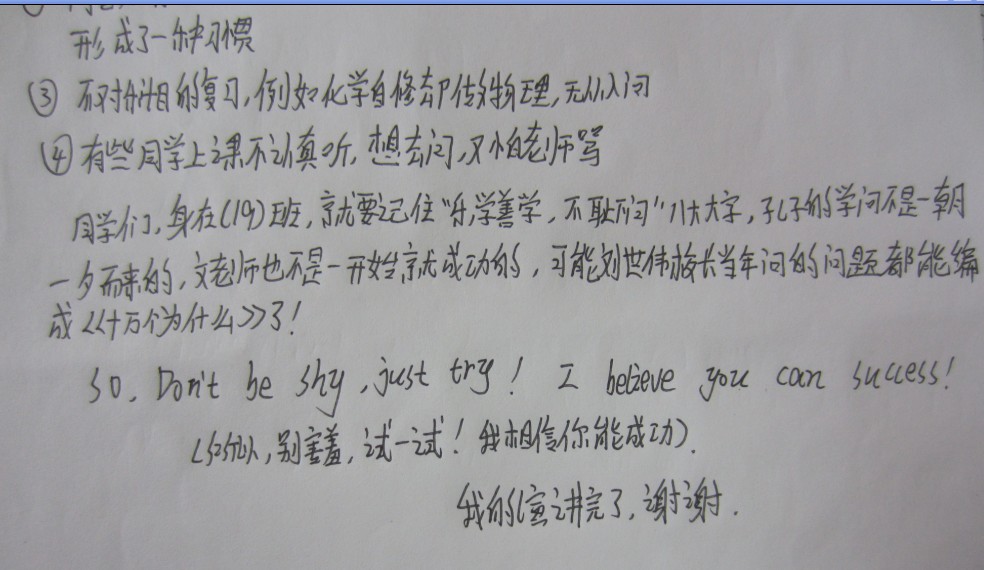 形成了一种习惯
③ 不对科目的复习,例如化学自修却做物理,无从入问
④ 有些同学上课不认真听,想去问,又怕老师骂
同学们,身在(19)班,就要记住“乐学善学,不耻下问”八大字,孔子的学问不是一朝
一夕而来的,文老师也不是一开始就成功的,可能刘世伟校长当年问的问题都能编
成《十万个为什么》了!
so, Don't be shy, just try! I believe you can success!
(所以,别害羞,试一试!我相信你能成功).
我的演讲完了,谢谢.